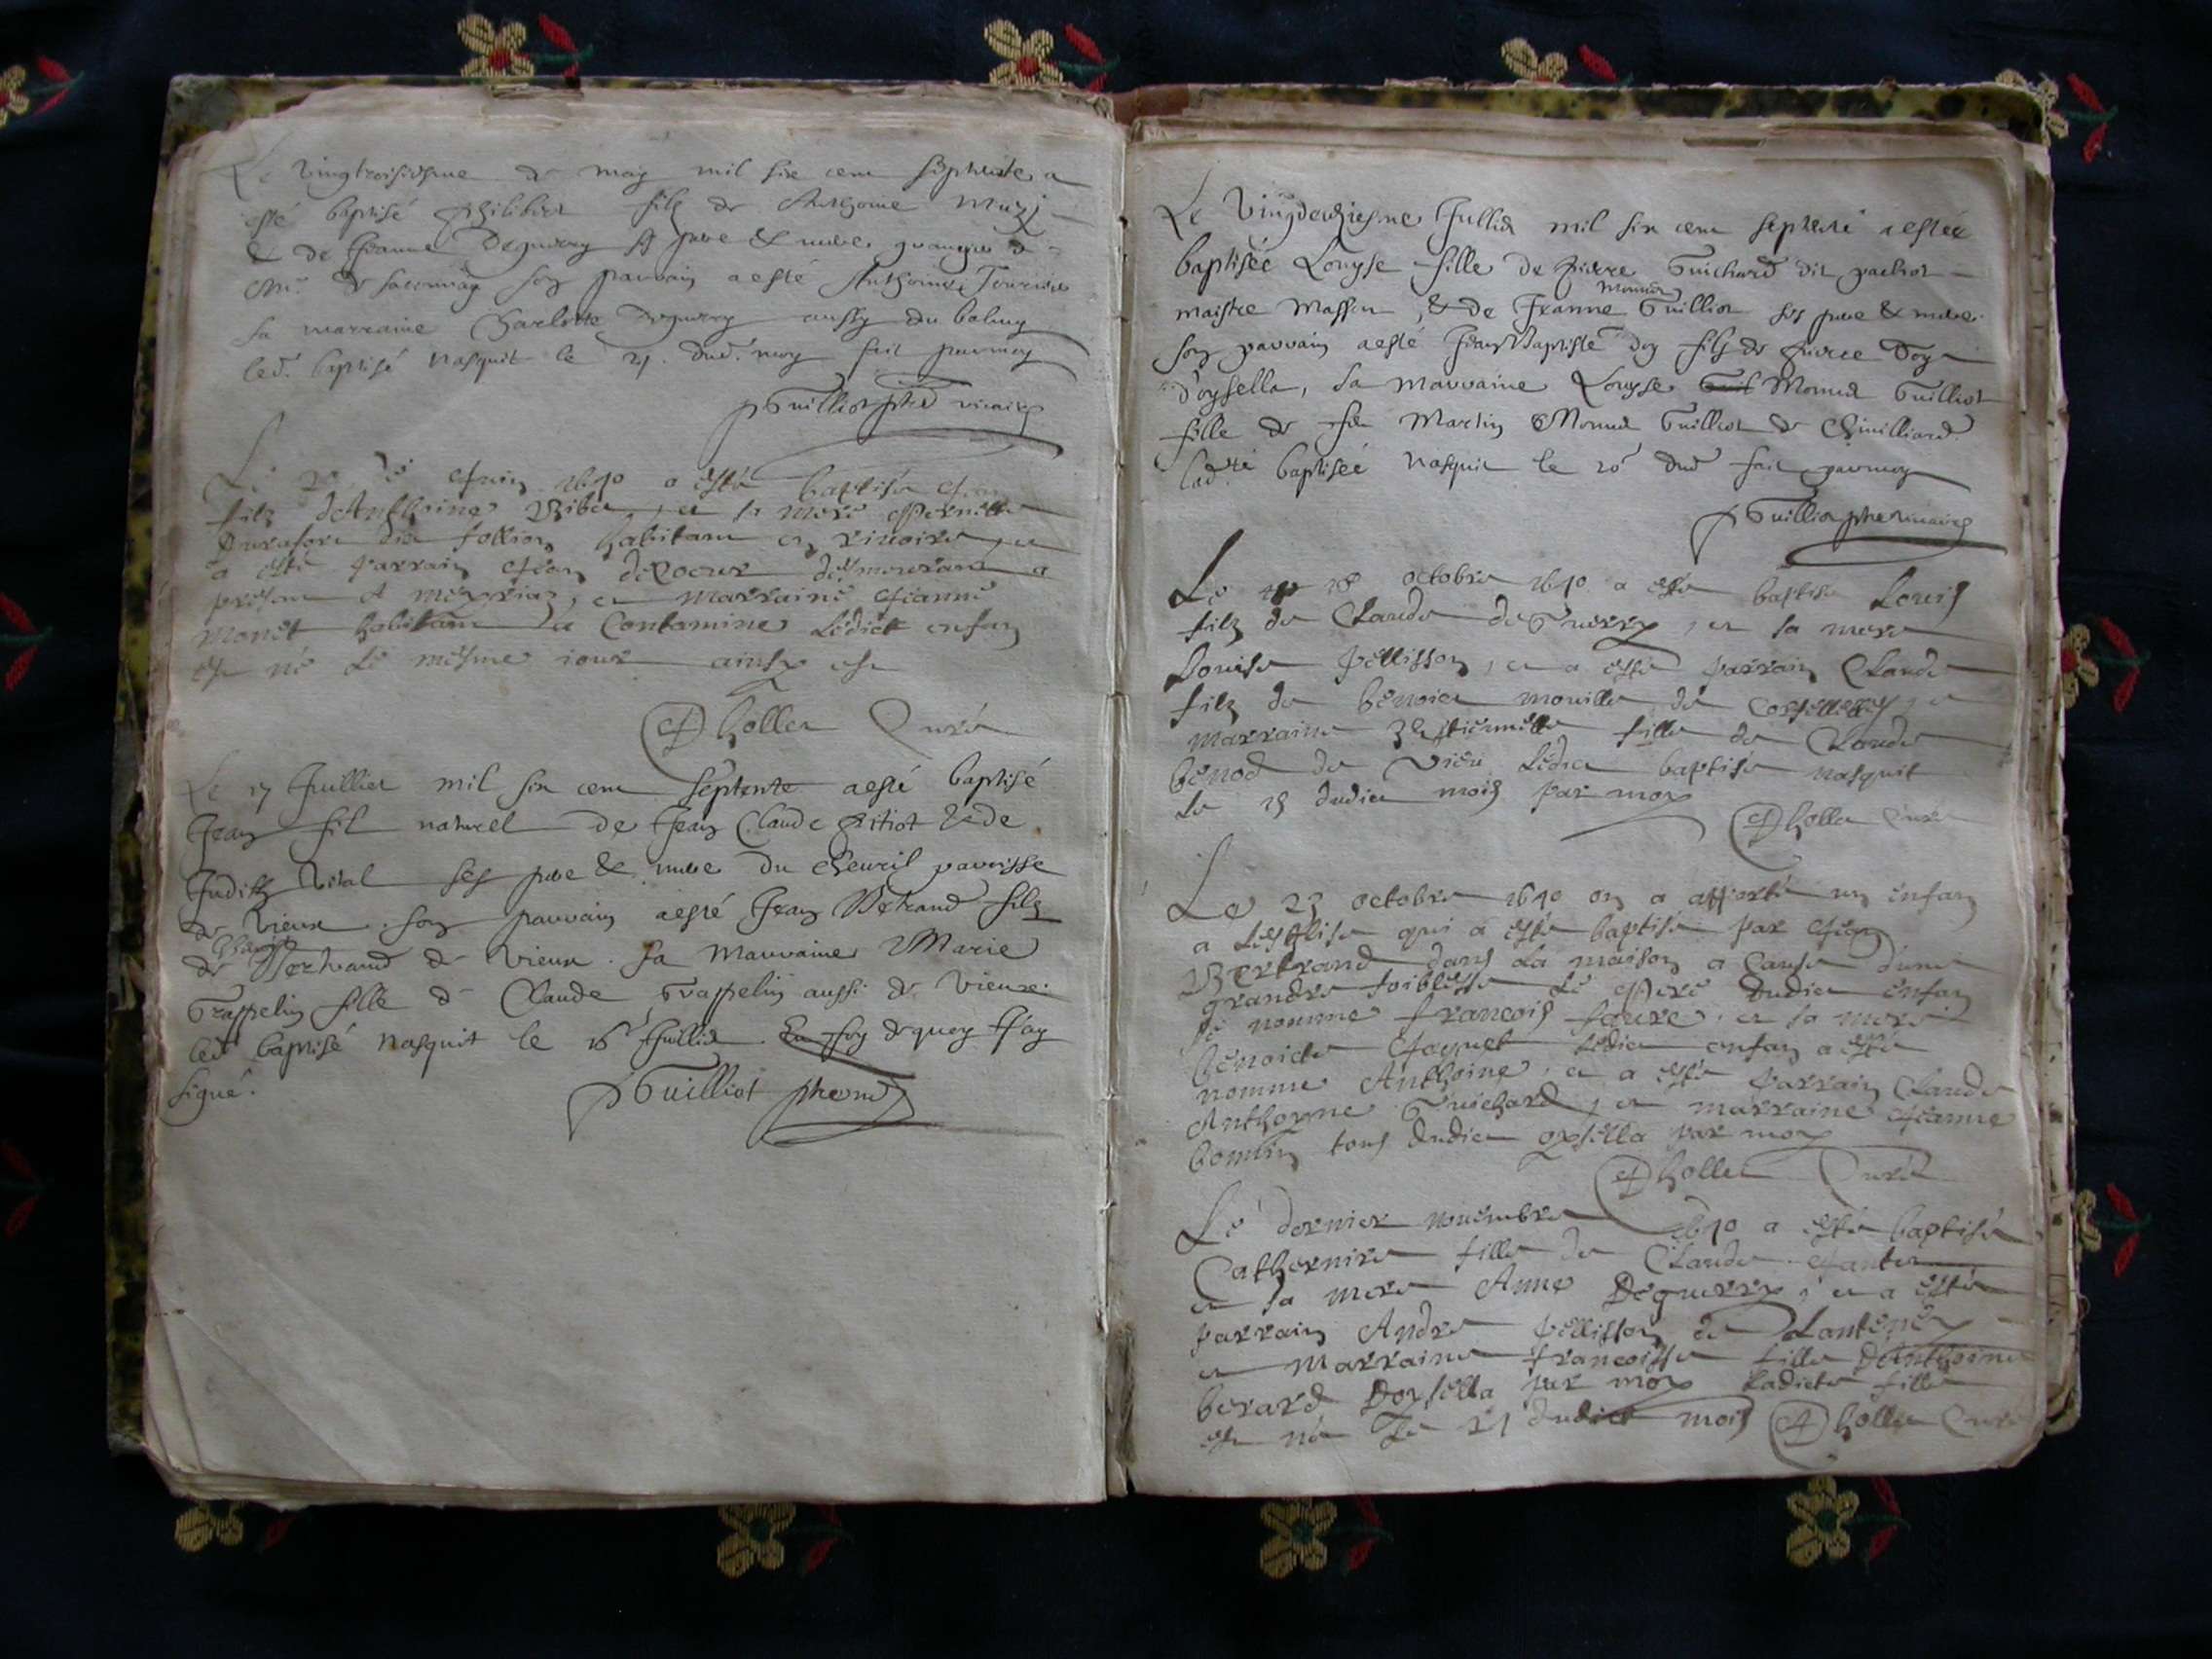 Le vingtroisiesme de may mil six cens septente a
esté baptisé philibert filz de Anthoine
& de Jeanne Deguerry ses pere & mere
son parrain a esté Anthoine
sa marraine Charlotte Deguerry aussy du
led. baptisé nasquit le 21. dud. moy fait par moy
pGuilliot pbre vicaire
Le Juin 1670 a esté baptisé Jean
filz d'Anthoine Ribe, et sa mere Pernette
habitant en
a esté parrain Jean demeurant a
present A et marraine Jeanne
Monet habitant a Contamine Ledict enfan
est né Le mesme iour ainsy est
Dhollet Curé
Le 17 Juillet mil six cens septente a esté baptisé
Jean fil naturel de Jean Claude Pitiot & de
Judith Vital ses pere & mere du Cheuril parroisse
de Vieux. son parrain a esté Jean Bertrand filz
de Bertrand de Vieux. sa Marraine Marie
Trappelin fille de Claude Trappelin aussi de Vieux.
led. baptisé nasquit le 16 Juillet. En foy de quoy J'ay
signé.
pGuilliot pbre
Le Vingdeuxiesme Juillet mil six cens septente a estée
baptisée Louyse fille de pierre Guichard dit pachot
Monet
maistre Masson, & de Jeanne Guilliot ses pere & mere.
son parrain a esté Jean Baptiste Doy filz de pierre Doy
d'oysella, sa marraine Louyse Guil Monet Guilliot
fille de feu Martin Monet Guilliot de Chivilliard.
lad.te baptisée nasquit le 20 dud. fait par moy
pGuilliot pbre vicaire
Le 18 octobre 1670 a esté baptisé Louis
filz de Claude deGuerry, et sa mere
Louise Pellisson, et a esté parrain Claude
filz de benoict mouille de
marraine Estiennette fille de Claude
benod de Vieu Ledict baptisé nasquit
Le 15 dudict mois par moy
Dhollet Curé
Le 23 octobre 1670 on a apporté un enfan
a Leglise qui a esté baptisé par Jean
Bertrand dans La maison a cause d'une
grandre foiblesse Le Pere dudict enfan
se nomme francois faure, et sa mere
benoicte Jaquet Ledict enfan a esté
nomme Anthoine, et a esté parrain Claude
Anthoyne Guichard, et marraine Jeanne
bonnin tous dudict oysella par moy
Dhollet Curé
Le dernier nouembre 1670 a esté baptisée
Cathernine fille de Claude Jantet
et sa mere Anne Deguerry, et a esté
parrain Andre Pellisson de Lantenay
et Marraine francoisse fille d'Anthoine
berard Doysella par moy Ladicte fille
est née Le 21 dudict mois Dhollet Curé